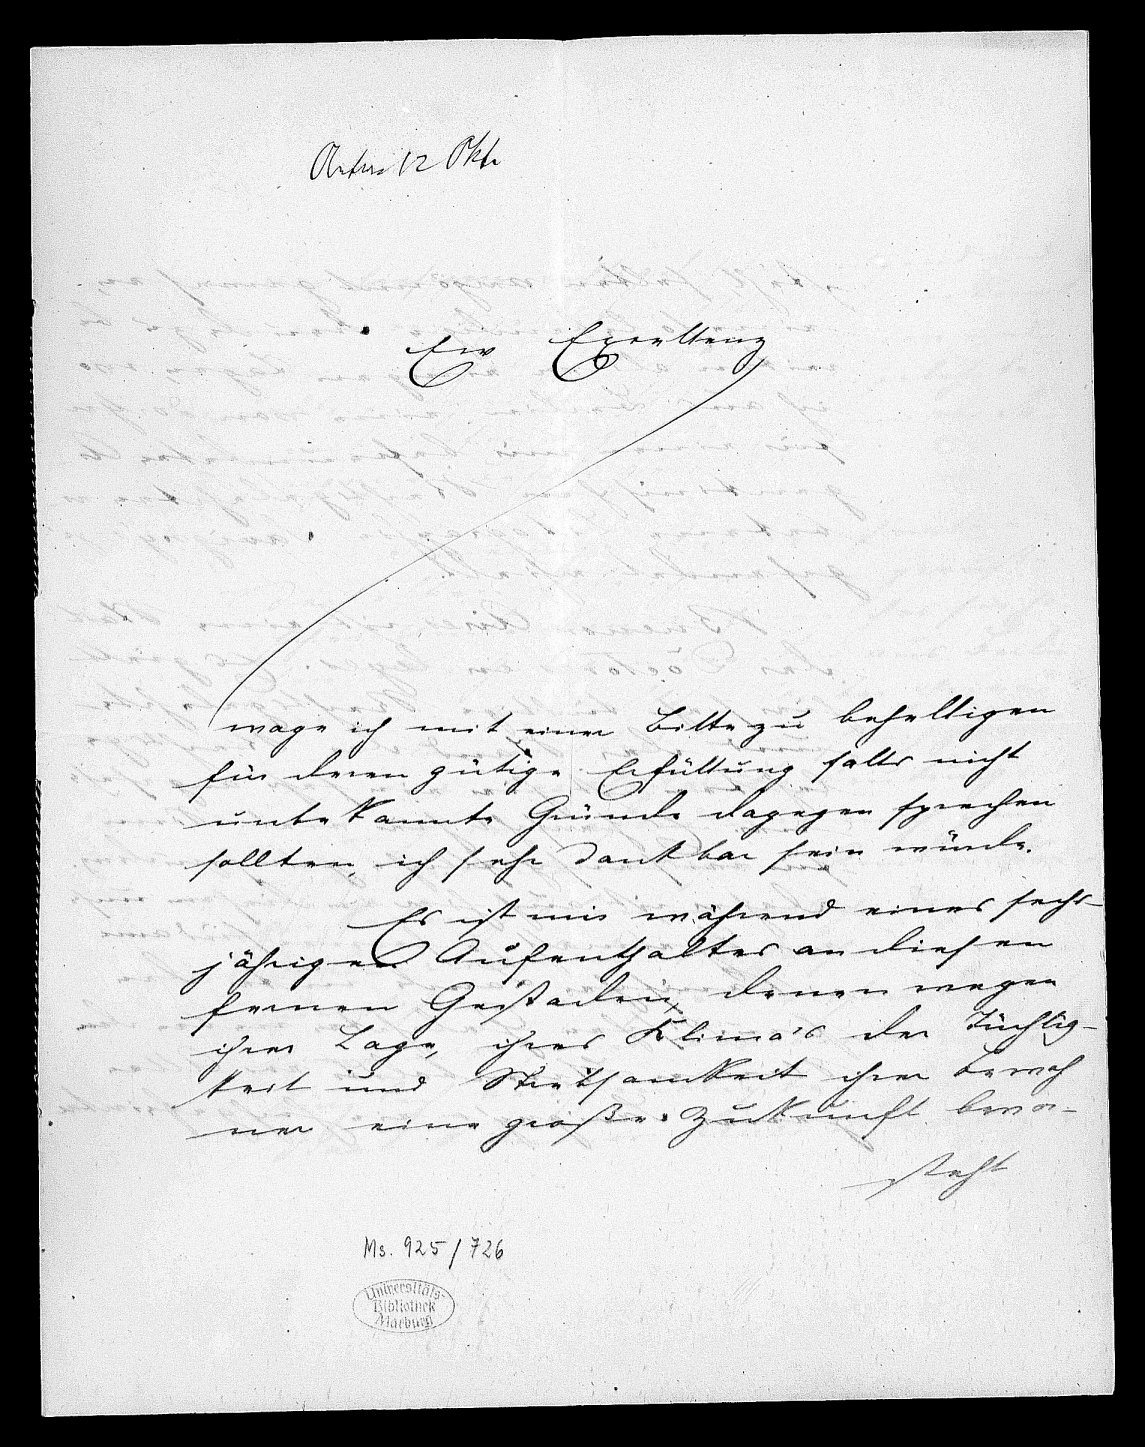 12 Okt
Ew Excellenz
wage ich mit einer Bitte zu behelligen
für deren gütige Erfüllung falls nicht
unbekannte Gründe dagegen sprechen
sollten, ich sehr dankbar sein würde.
Es ist mir während eines sechs-
jährigen Aufenthaltes an diesen
fernen Gestaden, denen wegen
ihrer Lage, ihres Klima's der Tüchtig-
keit und Strebsamkeit ihrer Bewoh
ner eine große Zukunft bevor-
steht
Ms. 925/726
Universitäts-
Bibliothek
Marburg